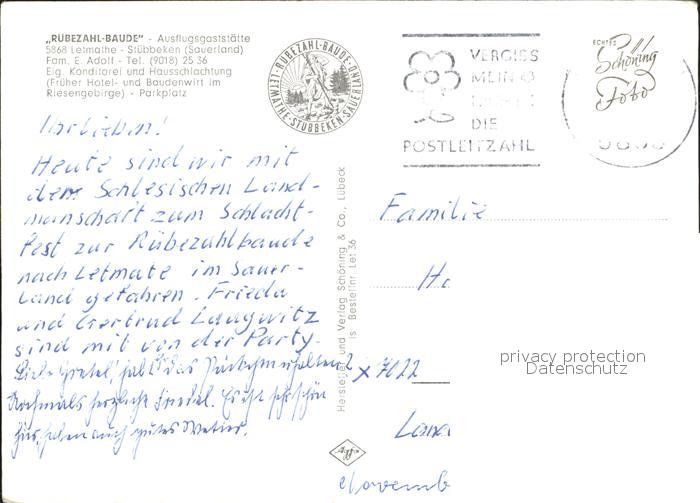 „RÜBEZAHL-BAUDE" - Ausflugsgaststätte
5868 Letmathe - Stübbeken (Sauerland)
Fam. E. Adolf - Tel. (9018) 25 36
Eig. Konditorei und Hausschlachtung
(Früher Hotel- und Baudenwirt im
Riesengebirge) - Parkplatz
RÜBEZAHL-BAUDE
LETMATHE-STÜBBEKEN-SAUERLAND
VERGISS
MEIN
NICHT
DIE
POSTLEITZAHL
ECHTES
Schöning
Foto
Ihr Lieben!
Heute sind wir mit
dem Schlesischen Land-
manschaft zum Schlacht-
fest zur Rübezahlbaude
nach Letmate im Sauer-
land gefahren. Frieda
und Gertrud Langwitz
sind mit von der Party.
Liebe Gretel, habt das
Nochmals herzliche Es ist sehr schön
hier, haben auch gutes Wetter.
Hersteller und Verlag Schöning & Co., Lübeck
Bestellnr. Let 36
Agfa
Familie
Ha
x 7022
Lana
Novemb
privacy protection
Datenschutz